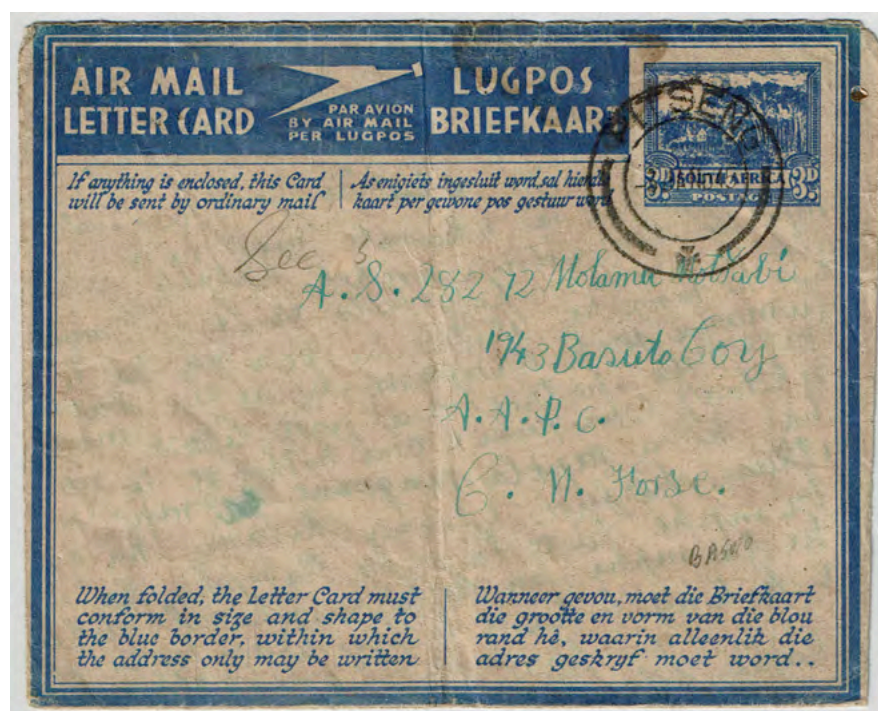 AIR MAIL
LETTER CARD
PAR AVION
BY AIR MAIL
PER LUGPOS
LUGPOS
BRIEFKAART
3D SOUTH AFRICA 3D
POSTAGE
PITSENG
If anything is enclosed, this Card
will be sent by ordinary mail
As enigiets ingesluit word, sal hierdie
kaart per gewone pos gestuur word
See
A. S. 282 12 Molamu
1943 Basuto Coy
A. A. P. C.
C. M. Forse.
BASUTO
When folded, the Letter Card must
conform in size and shape to
the blue border, within which
the address only may be written
Wanneer gevou, moet die Briefkaart
die grootte en vorm van die blou
rand hê, waarin alleenlik die
adres geskryf moet word..